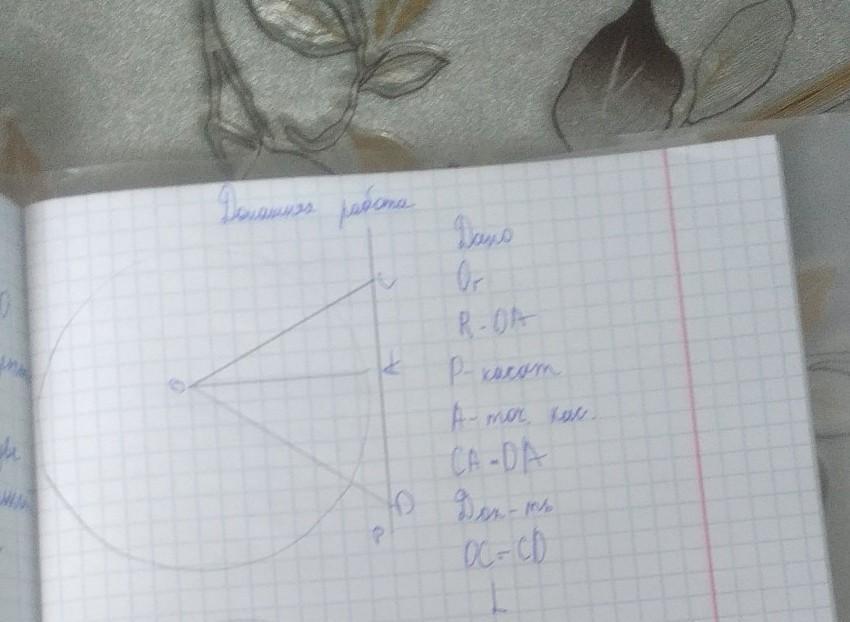 Домашняя работа
Дано
Or
R-OA
P-касат
A-точ. кас.
CA=DA
Док-ть
OC=CD
L
C
O
A
D
P